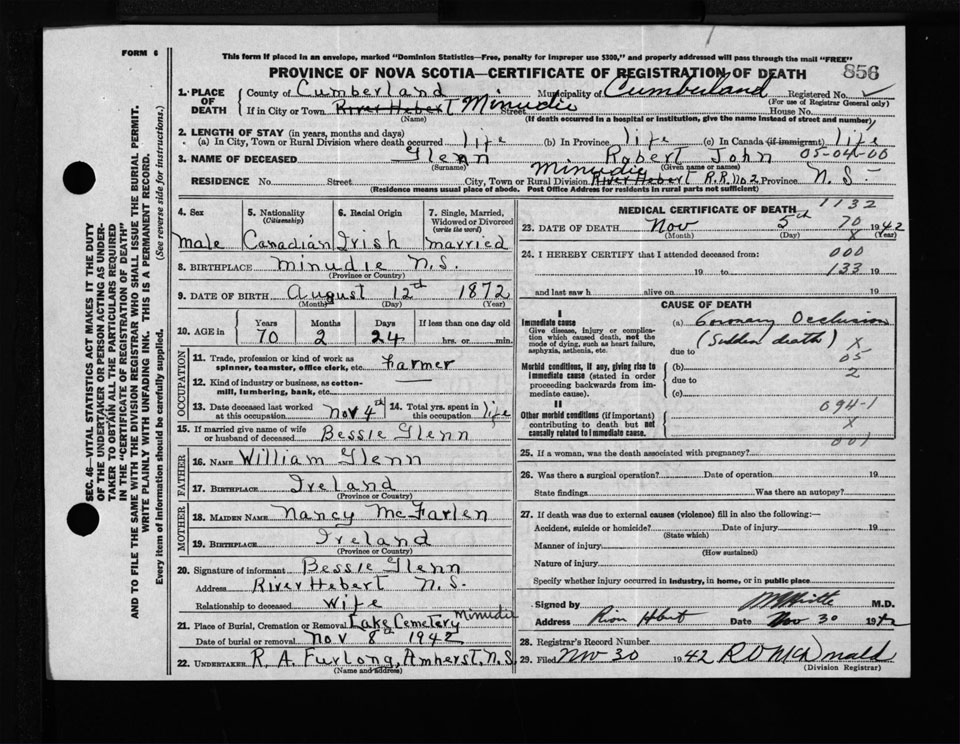 FORM 6
This form if placed in an envelope, marked "Dominion Statistics—Free, penalty for improper use $300," and properly addressed will pass through the mail "FREE"
PROVINCE OF NOVA SCOTIA—CERTIFICATE OF REGISTRATION OF DEATH 856
1. PLACE OF DEATH County of Cumberland Municipality of Cumberland Registered No.
(For use of Registrar General only)
If in City or Town River Hebert Minudie Street House No.
(Name) (If death occurred in a hospital or institution, give the name instead of street and number)
2. LENGTH OF STAY (in years, months and days)
(a) In City, Town or Rural Division where death occurred life (b) In Province life (c) In Canada (if immigrant) life
3. NAME OF DECEASED Glenn Robert John 05-04-00
(Surname) (Given name or names)
RESIDENCE No. Street City, Town or Rural Division Minudie River Hebert R.R. No 2 Province N.S.
(Residence means usual place of abode. For residents in rural parts not sufficient)
4. Sex 5. Nationality (Citizenship) 6. Racial Origin 7. Single, Married, Widowed or Divorced (write the word)
Male Canadian Irish married
8. BIRTHPLACE Minudie N.S.
(Province or Country)
9. DATE OF BIRTH August 12th 1872
(Month) (Day) (Year)
10. AGE in Years Months Days If less than one day old
70 2 24 hrs. or min.
OCCUPATION
11. Trade, profession or kind of work as spinner, teamster, office clerk, etc. Farmer
12. Kind of industry or business, as cotton-mill, lumbering, bank, etc.
13. Date deceased last worked at this occupation Nov 4th 14. Total yrs. spent in this occupation life
15. If married give name of wife or husband of deceased Bessie Glenn
FATHER
16. NAME William Glenn
17. BIRTHPLACE Ireland
(Province or Country)
MOTHER
18. MAIDEN NAME Nancy McFarlen
19. BIRTHPLACE Ireland
(Province or Country)
20. Signature of informant Bessie Glenn
Address River Hebert N.S.
Relationship to deceased wife
21. Place of Burial, Cremation or Removal Lake Cemetery Minudie
Date of burial or removal Nov 8th 1942
22. UNDERTAKER R. A. Furlong, Amherst, N.S.
(Name and address)
MEDICAL CERTIFICATE OF DEATH 1132
23. DATE OF DEATH Nov 5th 70 1942
(Month) (Day) X (Year)
24. I HEREBY CERTIFY that I attended deceased from: 000
19 to 133 19
and last saw h alive on 19
CAUSE OF DEATH
I
Immediate cause (a) Coronary Occlusion
Give disease, injury or complication which caused death, not the mode of dying, such as heart failure, asphyxia, asthenia, etc.
(Sudden death) X
due to 05
Morbid conditions, if any, giving rise to immediate cause (stated in order proceeding backwards from immediate cause).
(b) 2
due to
(c)
II
094-1
Other morbid conditions (if important) contributing to death but not causally related to immediate cause.
X
001
25. If a woman, was the death associated with pregnancy?
26. Was there a surgical operation? Date of operation 19
State findings Was there an autopsy?
27. If death was due to external causes (violence) fill in also the following:—
Accident, suicide or homicide? Date of injury 19
(State which)
Manner of injury
(How sustained)
Nature of injury
Specify whether injury occurred in industry, in home, or in public place
Signed by M.D.
Address River Hebert Date Nov 30 1942
28. Registrar's Record Number
29. Filed Nov 30 1942 R D McDonald
(Division Registrar)
SEC. 46—VITAL STATISTICS ACT MAKES IT THE DUTY
OF THE UNDERTAKER OR PERSON ACTING AS UNDER-
TAKER TO OBTAIN ALL THE PARTICULARS REQUIRED
IN THE "CERTIFICATE OF REGISTRATION OF DEATH"
AND TO FILE THE SAME WITH THE DIVISION REGISTRAR WHO SHALL ISSUE THE BURIAL PERMIT.
WRITE PLAINLY WITH UNFADING INK. THIS IS A PERMANENT RECORD.
Every item of information should be carefully supplied. (See reverse side for instructions.)